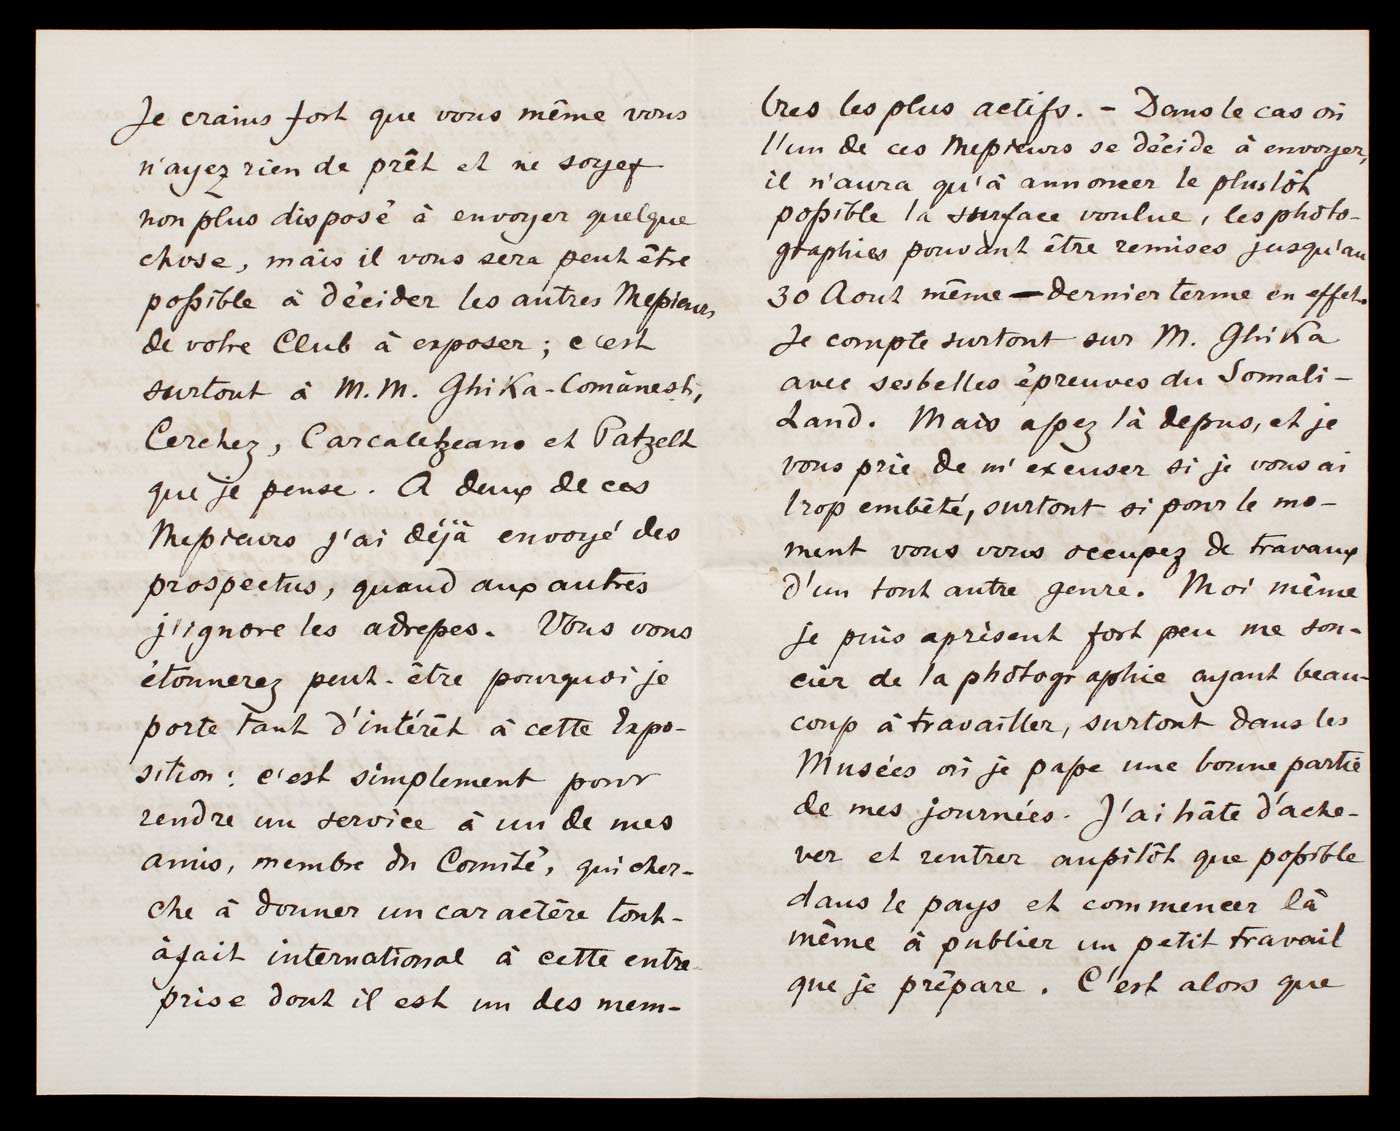 Je crains fort que vous même vous
n'ayez rien de prêt et ne soyez
non plus disposé à envoyer quelque
chose, mais il vous sera peut être
possible à décider les autres Messieurs
de votre Club à exposer ; c'est
surtout à M.M. Ghika-Comănesti,
Cerchez, Carcaletzeano et Patzelt
que je pense. A deux de ces
Messieurs j'ai déjà envoyé des
prospectus, quand aux autres
j'ignore les adresses. Vous vous
étonnerez peut-être pourquoi je
porte tant d'intérêt à cette Expo-
sition : c'est simplement pour
rendre un service à un de mes
amis, membre du Comité, qui cher-
che à donner un caractère tout-
à fait international à cette entre
prise dont il est un des mem-
bres les plus actifs. - Dans le cas où
l'un de ces Messieurs se décide à envoyer,
il n'aura qu'à annoncer le plustôt
possible la surface voulue, les photo-
graphies pouvant être remises jusqu'au
30 Aout même — dernier terme en effet.
Je compte surtout sur M. Ghika
avec ses belles épreuves du Somali-
Land. Mais assez là depus, et je
vous prie de m'excuser si je vous ai
trop embêté, surtout si pour le mo-
ment vous vous occupez de travaux
d'un tout autre genre. Moi même
je puis aprèsent fort peu me sou-
cier de la photographie ayant beau-
coup à travailler, surtout dans les
Musées où je passe une bonne partie
de mes journées. J'ai hâte d'ache-
ver et rentrer aussitôt que possible
dans le pays et commencer là
même à publier un petit travail
que je prépare. C'est alors que